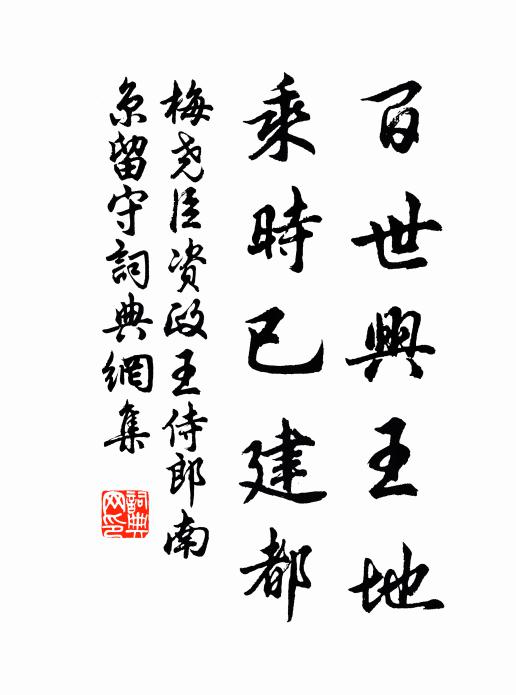 百世興王地
乘時已建都
梅尧臣资政王侍郎南
京留守詞典網集
詞典
网印